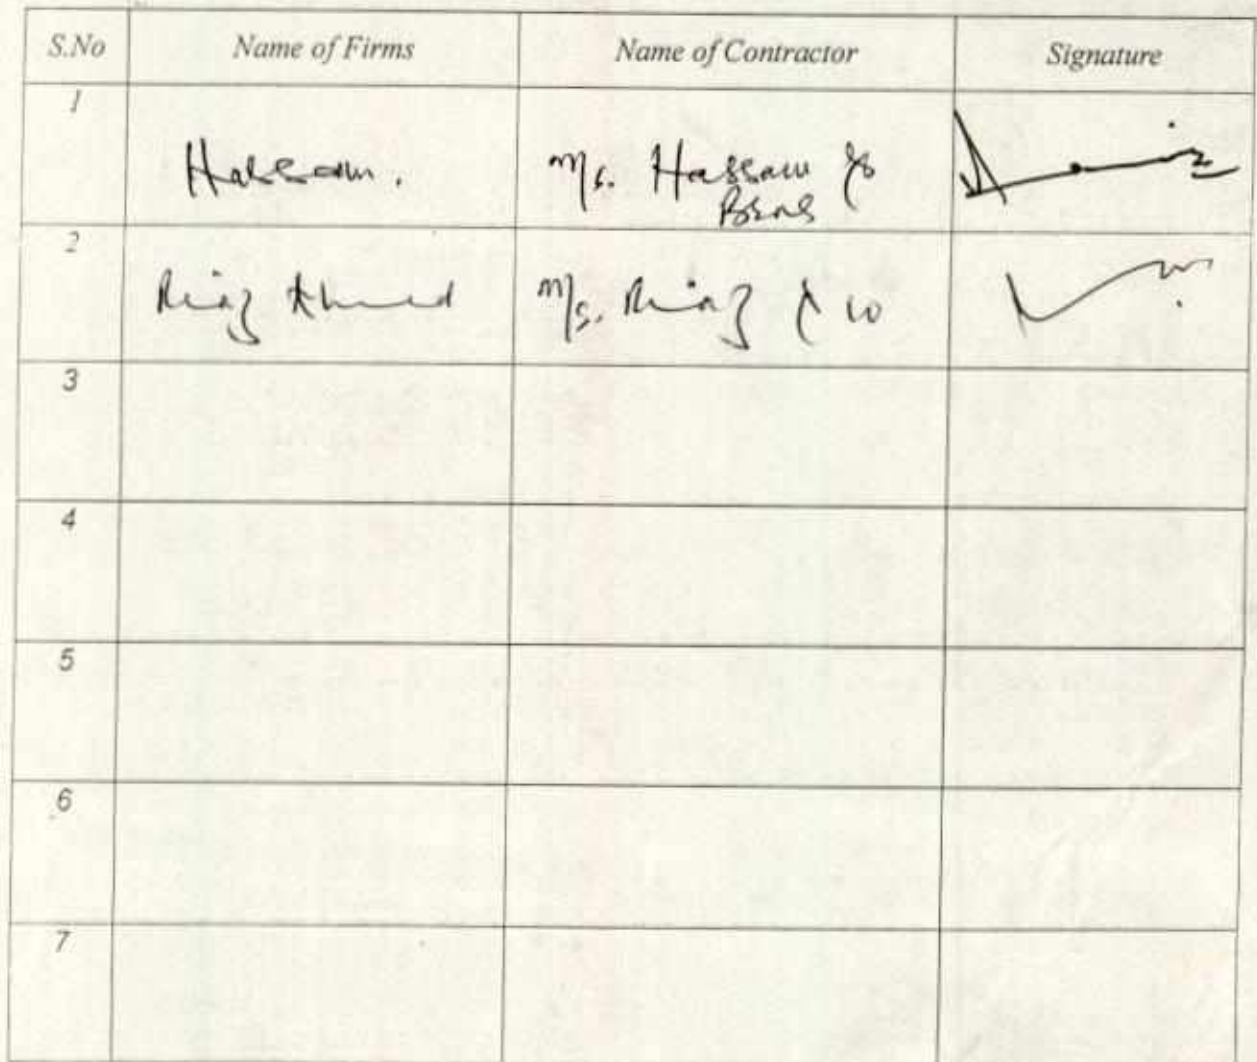 S.No Name of Firms Name of Contractor Signature
1 Hassam. M/s. Hassam &
Bros
2 Riaz Ahmed M/s. Riaz & co
3
4
5
6
7